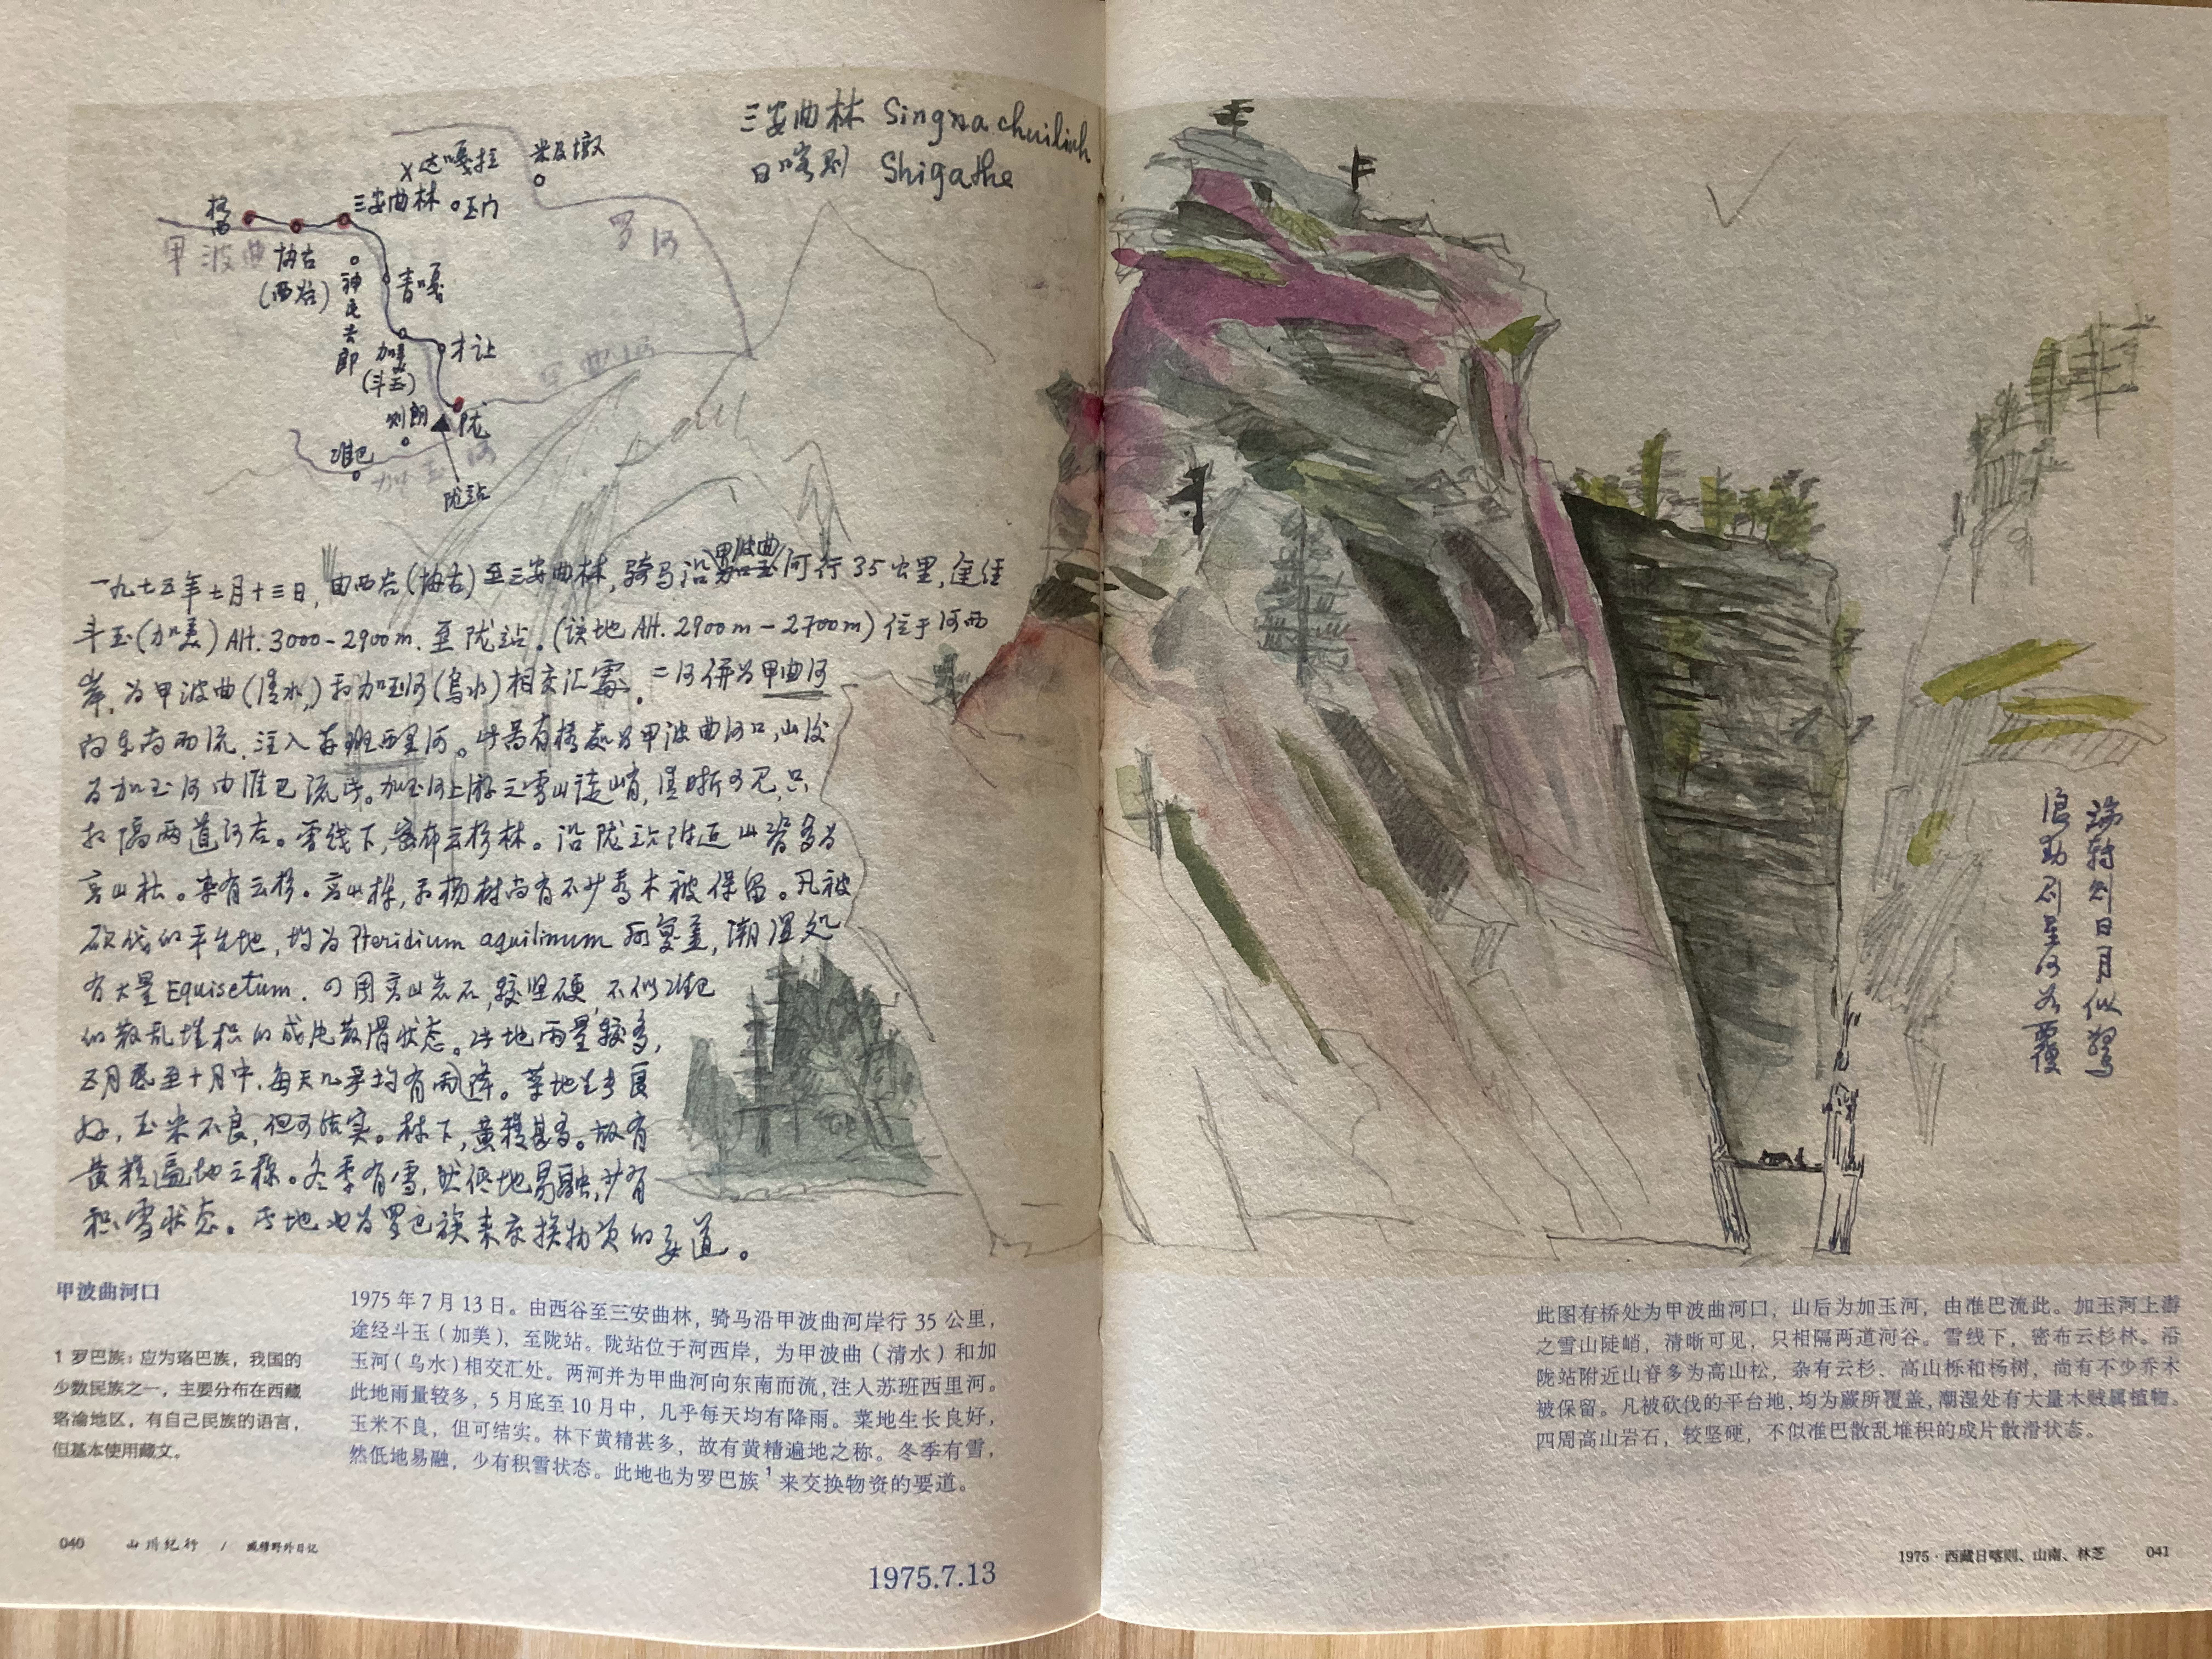 三安曲林 Singna chuilinh
日喀则 Shigathe
x达嘎拉
米及墩
三安曲林
玉门
罗河
甲波曲
协古
(西谷)
青嘎
加美
(斗玉)
才让
甲曲河
则朗
陇
准巴
加玉河
陇站
一九七五年七月十三日，由西谷(协古)至三安曲林，骑马沿甲波曲河行35公里，途经
斗玉(加美) Alt. 3000-2900m. 至陇站。(该地 Alt. 2900m-2700m) 位于河西
岸，为甲波曲(清水)和加玉河(乌水)相交汇处。二河併为甲曲河
向东南而流，注入苏班西里河。此图有桥处为甲波曲河口，山后
为加玉河由准巴流此。加玉河上游之雪山陡峭，清晰可见，只
相隔两道河谷。雪线下，密布云杉林。沿陇站附近山脊多为
高山松。杂有云杉。高山栎，和杨树尚有不少乔木被保留。凡被
砍伐的平台地，均为Pteridium aquilinum所复盖，潮湿处
有大量Equisetum. 四周高山岩石，较坚硬，不似准巴
的散乱堆积的成片散滑状态。此地雨量较多，
五月底至十月中，每天几乎均有雨降。菜地生长良
好，玉米不良，但可结实。林下，黄精甚多。故有
黄精遍地之称。冬季有雪，然低地易融，少有
积雪状态。此地也为罗巴族来交换物资的要道。
端转刻日月似驾
浪劲刷星河如覆
甲波曲河口
1 罗巴族：应为珞巴族，我国的
少数民族之一，主要分布在西藏
珞渝地区，有自己民族的语言，
但基本使用藏文。
1975年7月13日。由西谷至三安曲林，骑马沿甲波曲河岸行35公里，
途经斗玉（加美），至陇站。陇站位于河西岸，为甲波曲（清水）和加
玉河（乌水）相交汇处。两河并为甲曲河向东南而流，注入苏班西里河。
此地雨量较多，5月底至10月中，几乎每天均有降雨。菜地生长良好，
玉米不良，但可结实。林下黄精甚多，故有黄精遍地之称。冬季有雪，
然低地易融，少有积雪状态。此地也为罗巴族1来交换物资的要道。
此图有桥处为甲波曲河口，山后为加玉河，由准巴流此。加玉河上游
之雪山陡峭，清晰可见，只相隔两道河谷。雪线下，密布云杉林。沿
陇站附近山脊多为高山松，杂有云杉、高山栎和杨树，尚有不少乔木
被保留。凡被砍伐的平台地，均为蕨所覆盖，潮湿处有大量木贼属植物。
四周高山岩石，较坚硬，不似准巴散乱堆积的成片散滑状态。
040 山川纪行 / 臧穆野外日记
1975.7.13
1975·西藏日喀则、山南、林芝 041